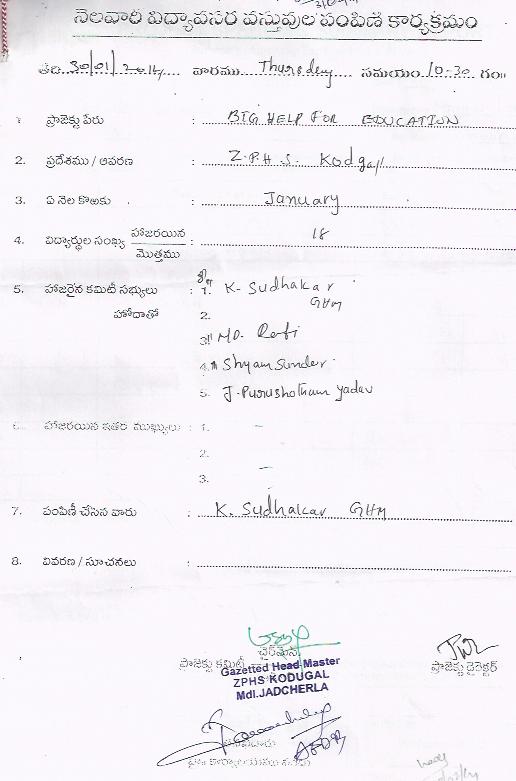 నెలవారి విద్యావసర వస్తువుల పంపిణి కార్యక్రమం
తేది 30/01/2014 వారము Thursday సమయం 10-30 గం॥
1. ప్రాజెక్టు పేరు : BIG HELP FOR EDUCATION
2. ప్రదేశము / ఆవరణ : Z.P.H.S. Kodgall
3. ఏ నెల కొఱకు : January
4. విద్యార్థుల సంఖ్య హాజరయిన : 18
మొత్తము
5. హాజరైన కమిటీ సభ్యులు : 1. K. Sudhakar
GHM
హోదాతో 2.
3. MD. Rafi
4. Shyam Sunder
5. J. Purushotham yadav
6. హాజరయిన ఇతర ముఖ్యులు : 1. –
2.
3. –
7. పంపిణీ చేసిన వారు : K. Sudhakar GHM
8. వివరణ / సూచనలు :
ప్రాజెక్టు కమిటీ చైర్మెన్
ప్రాజెక్టు డైరెక్టర్
Gazetted Head Master
ZPHS KODUGAL
Mdl.JADCHERLA